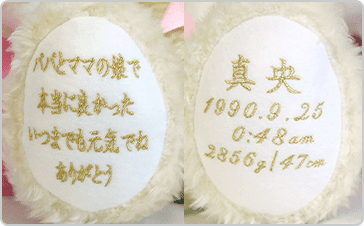 パパとママの娘で
本当に良かった
いつまでも元気でね
ありがとう
真央
1990.9.25
0:48am
2856g/47cm